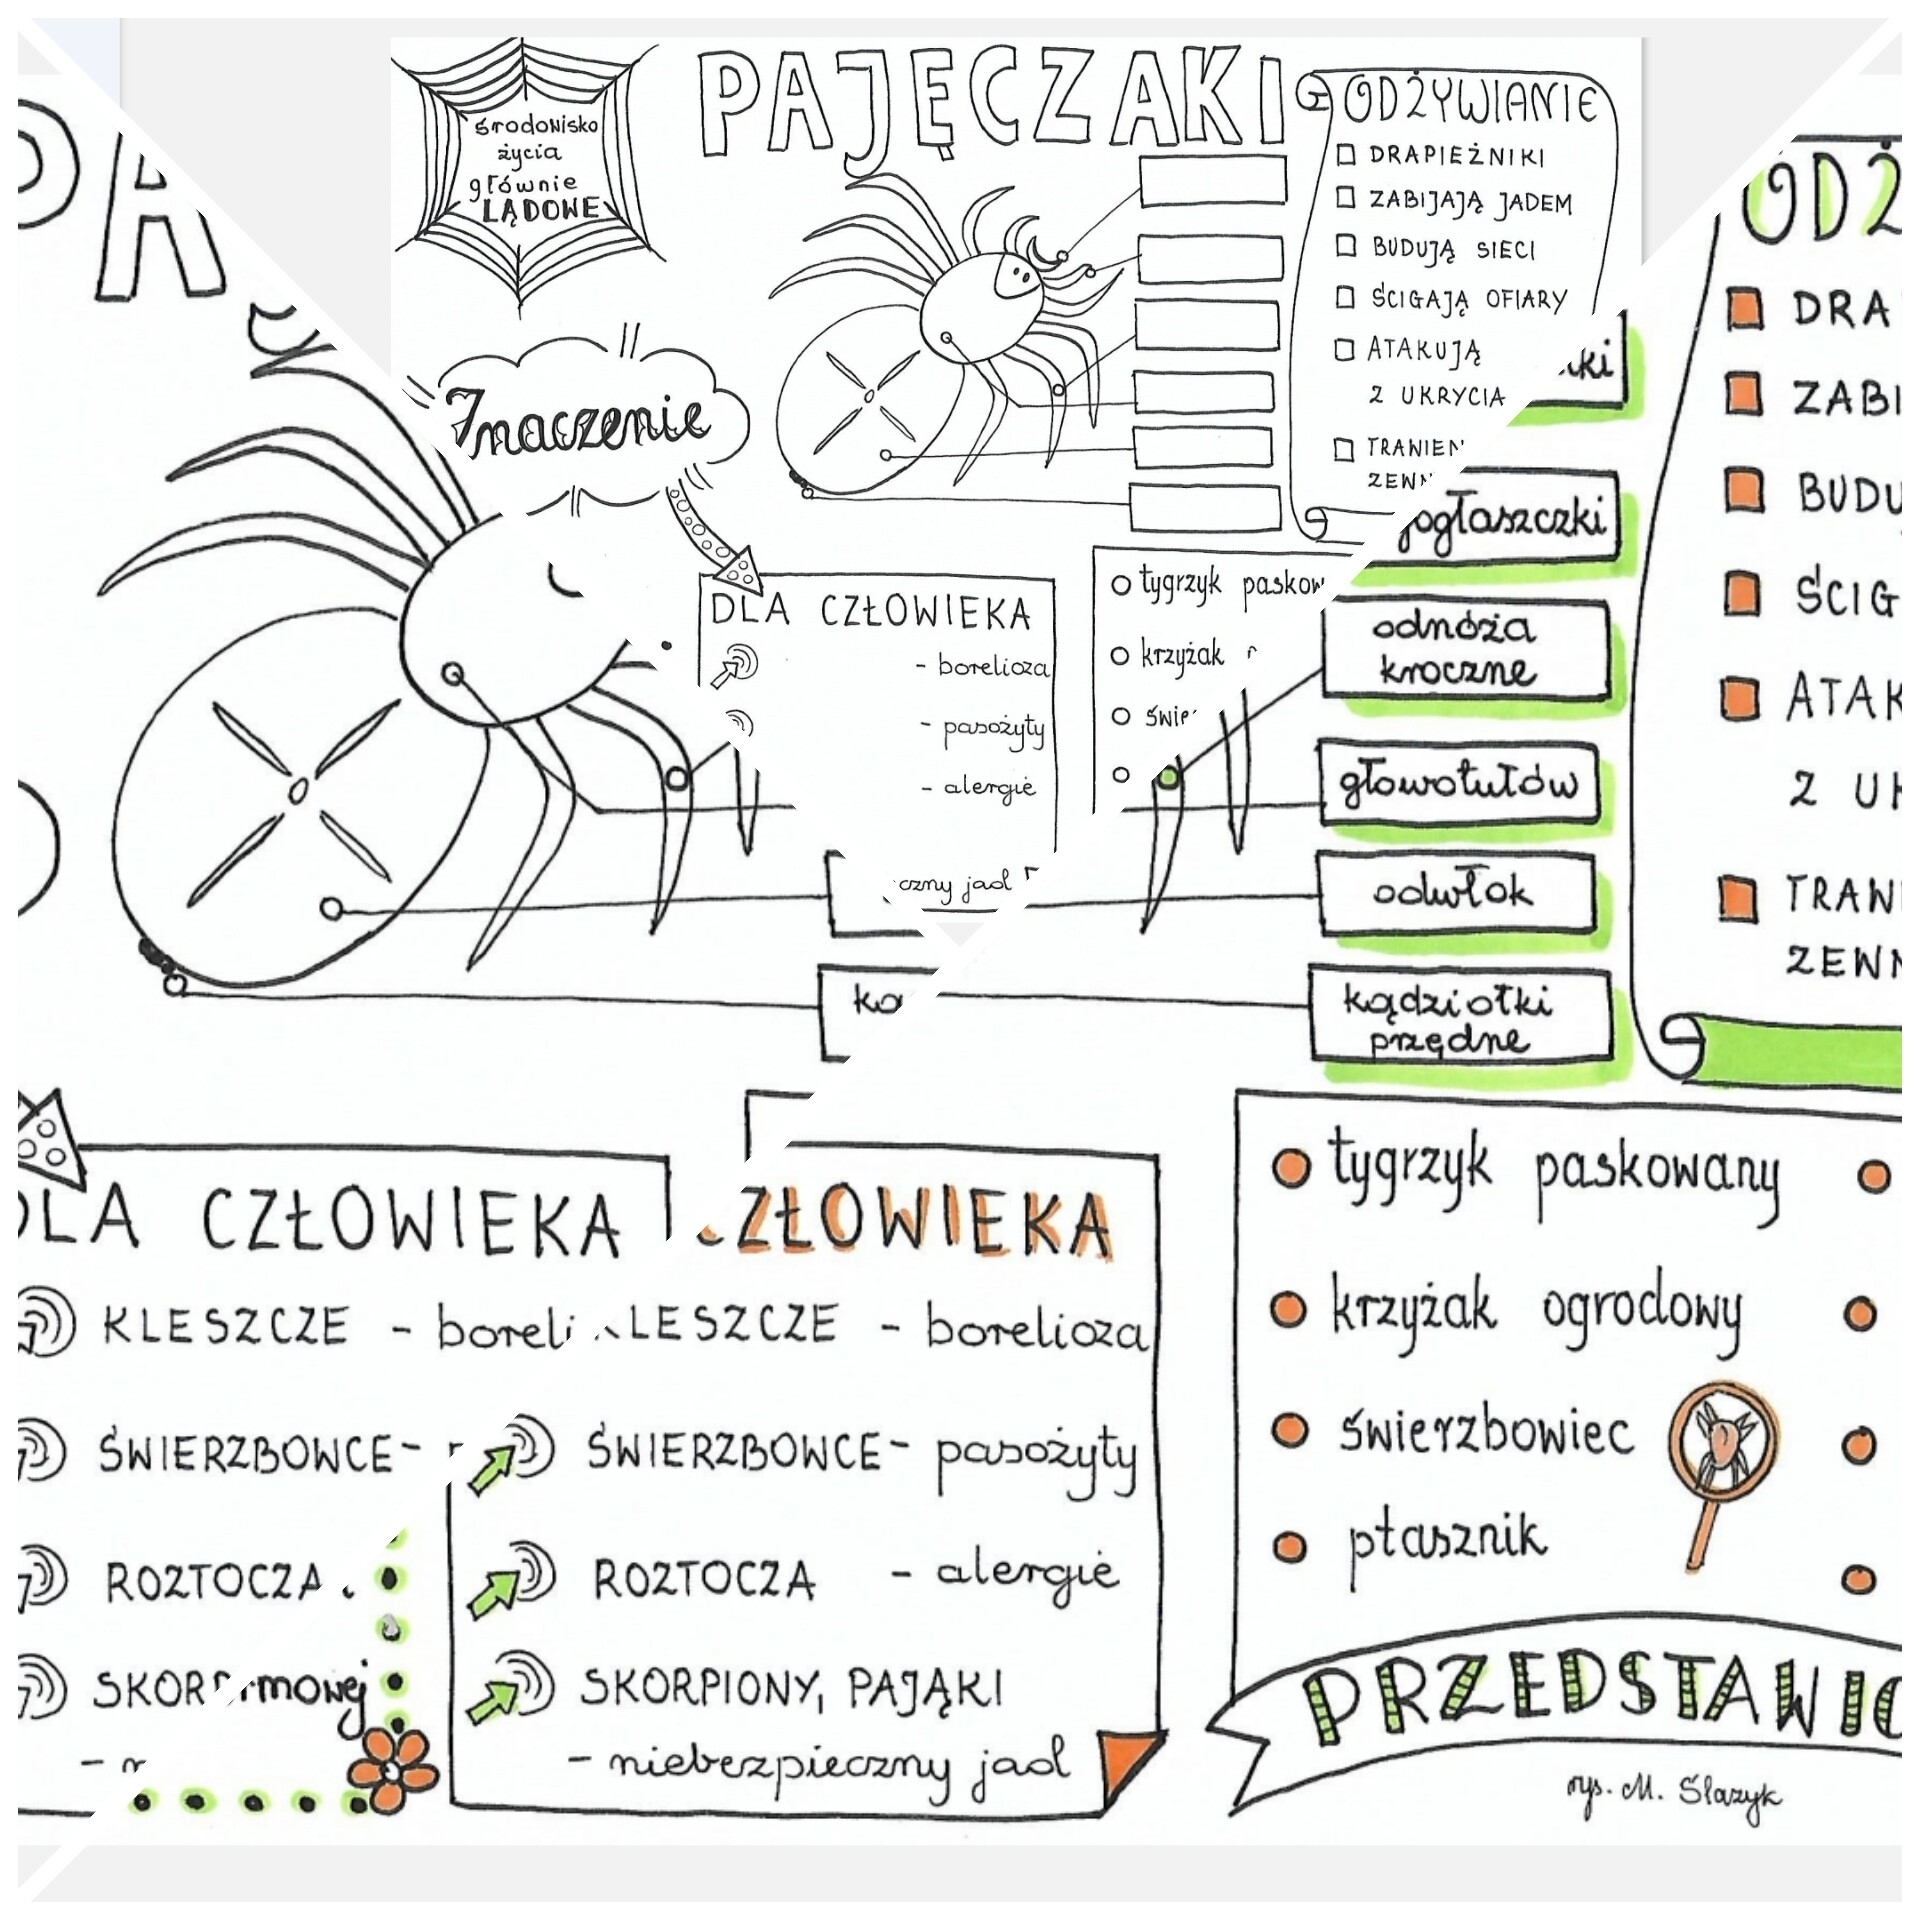 środowisko
życia
głównie
LĄDOWE
PAJĘCZAKI
ODŻYWIANIE
DRAPIEŻNIKI
ZABIJAJĄ JADEM
BUDUJĄ SIECI
ŚCIGAJĄ OFIARY
ATAKUJĄ
Z UKRYCIA
TRAWIEN
ZEWN
Znaczenie
DLA CZŁOWIEKA
- borelioza
- pasożyty
- alergie
czny jad
tygrzyk paskow
krzyżak
świe
PA
ki
nogłaszczki
odnóża
kroczne
głowotułów
odwłok
kądziołki
przędne
ODŻ
DRA
ZABI
BUDU
ŚCIG
ATAK
Z UK
TRAW
ZEWN
ką
DLA CZŁOWIEKA
KLESZCZE - boreli
ŚWIERZBOWCE -
ROZTOCZA
SKORP
- n
mowej
ZŁOWIEKA
LESZCZE - borelioza
ŚWIERZBOWCE - pasożyty
ROZTOCZA - alergie
SKORPIONY, PAJĄKI
- niebezpieczny jad
tygrzyk paskowany
krzyżak ogrodowy
świerzbowiec
ptasznik
PRZEDSTAWIC
rys. M. Ślazyk